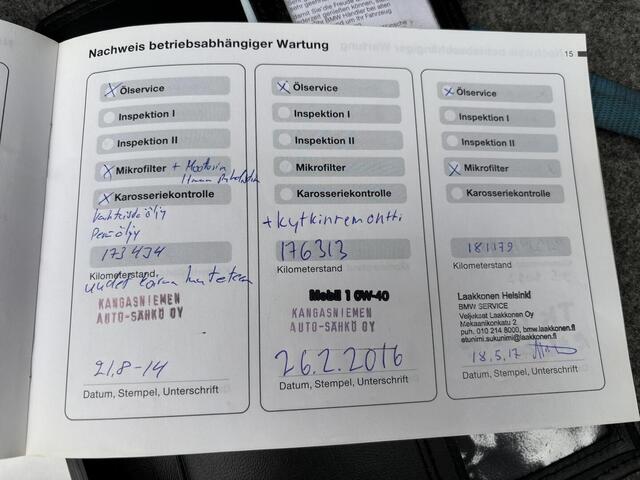 Nachweis betriebsabhängiger Wartung
15
X Ölservice
Inspektion I
Inspektion II
X Mikrofilter + Moottorin
X Karosseriekontrolle
Vaihteistoöljy
Peräöljy
173434
Kilometerstand
uudet
KANGASNIEMEN
AUTO-SÄHKÖ OY
21.8-14
Datum, Stempel, Unterschrift
X Ölservice
Inspektion I
Inspektion II
Mikrofilter
Karosseriekontrolle
+ kytkinremontti
176313
Kilometerstand
Mobil 1 0W-40
KANGASNIEMEN
AUTO-SÄHKÖ OY
26.2.2016
Datum, Stempel, Unterschrift
X Ölservice
Inspektion I
Inspektion II
X Mikrofilter
Karosseriekontrolle
181179
Kilometerstand
Laakkonen Helsinki
BMW SERVICE
Veljekset Laakkonen Oy
Mekaanikonkatu 2
puh. 010 214 8000, bmw.laakkonen.fi
etunimi.sukunimi@laakkonen.fi
18.5.17
Datum, Stempel, Unterschrift